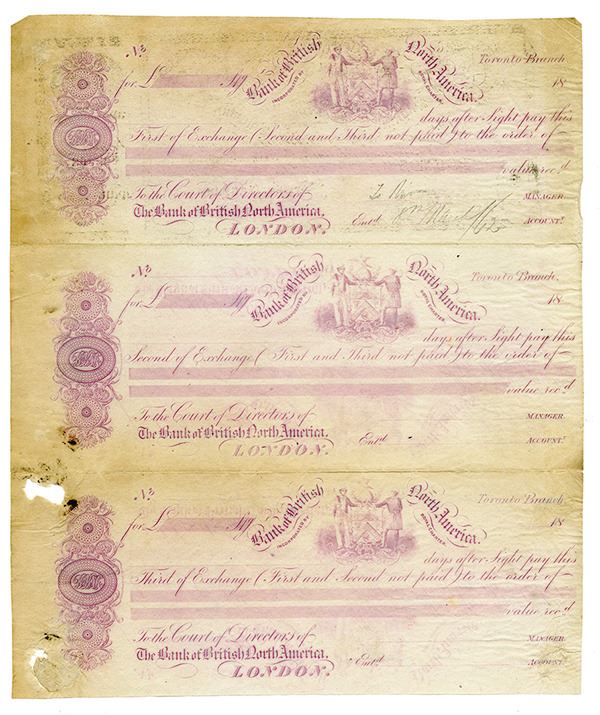 No Bank of British North America. Toronto Branch
for £ Stg INCORPORATED BY ROYAL CHARTER. 18
days after Sight pay this
First of Exchange (Second and Third not paid) to the order of
value rec.d
To the Court of Directors of MANAGER.
The Bank of British North America,
LONDON. Ent.d ACCOUNT.t
No Bank of British North America. Toronto Branch
for £ Stg INCORPORATED BY ROYAL CHARTER. 18
days after Sight pay this
Second of Exchange (First and Third not paid) to the order of
value rec.d
To the Court of Directors of MANAGER.
The Bank of British North America,
LONDON. Ent.d ACCOUNT.t
No Bank of British North America. Toronto Branch
for £ Stg INCORPORATED BY ROYAL CHARTER. 18
days after Sight pay this
Third of Exchange (First and Second not paid) to the order of
value rec.d
To the Court of Directors of MANAGER.
The Bank of British North America,
LONDON. Ent.d ACCOUNT.t